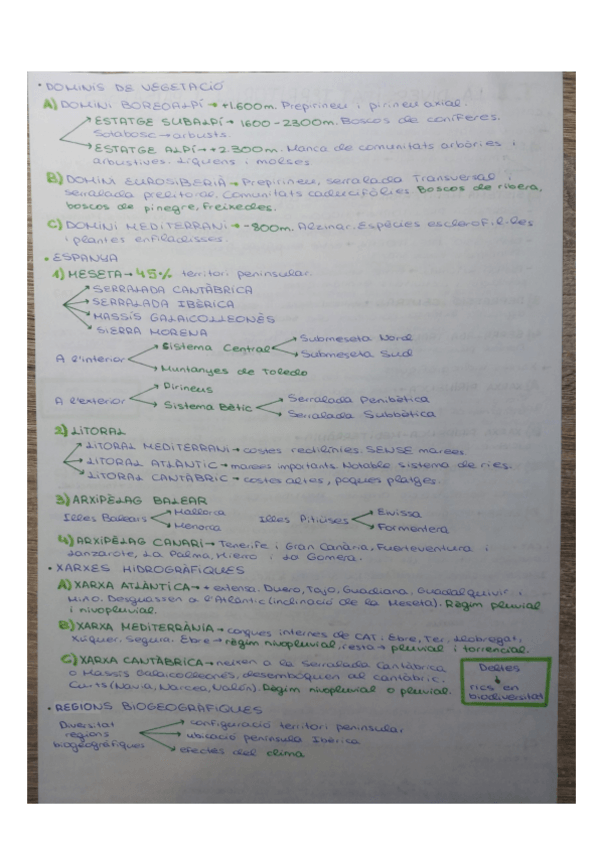 • DOMINIS DE VEGETACIÓ
A) DOMINI BOREOALPÍ → +1.600m. Prepirineu i pirineu axial.
ESTATGE SUBALPÍ → 1600-2300m. Boscos de coníferes.
Sotabosc → arbusts.
ESTATGE ALPÍ → +2.300m. Manca de comunitats arbòries i
arbustives. Líquens i molses
B) DOMINI EUROSIBERIÀ → Prepirineu, serralada Transversal i
serralada prelitoral. Comunitats caducifòlies. Boscos de ribera,
boscos de pinegre, freixedes.
C) DOMINI MEDITERRANI → -800m. Alzinar. Espècies escleròfil·les
i plantes enfiladisses.
• ESPANYA
1) MESETA → 45% territori peninsular.
SERRALADA CANTÀBRICA
SERRALADA IBÈRICA
MASSÍS GALAICOLLEONÈS
SIERRA MORENA
A l'interior
Sistema Central
Submeseta Nord
Submeseta Sud
Muntanyes de Toledo
A l'exterior
Pirineus
Sistema Bètic
Serralada Penibètica
Serralada Subbètica
2) LITORAL
LITORAL MEDITERRANI → costes rectilínies. SENSE marees.
LITORAL ATLÀNTIC → marees importants. Notable sistema de ries.
LITORAL CANTÀBRIC → costes altes, poques platges.
3) ARXIPÈLAG BALEAR
Illes Balears
Mallorca
Menorca
Illes Pitiüses
Eivissa
Formentera
4) ARXIPÈLAG CANARI → Tenerife i Gran Canària, Fuerteventura i
Lanzarote, La Palma, Hierro i La Gomera.
• XARXES HIDROGRÀFIQUES
A) XARXA ATLÀNTICA → + extensa. Duero, Tajo, Guadiana, Guadalquivir i
Miño. Desguassen a l'Atlàntic (inclinació de la Meseta). Règim pluvial
i nivopluvial.
B) XARXA MEDITERRÀNIA → conques internes de CAT. Ebre, Ter, Llobregat,
Xúquer, Segura. Ebre → règim nivopluvial, resta → pluvial i torrencial.
C) XARXA CANTÀBRICA → neixen a la Serralada Cantàbrica
o Massís Galaicolleonès, desemboquen al cantàbric.
Curts (Navia, Narcea, Nalón). Règim nivopluvial o pluvial.
Deltes
rics en
biodiversitat
• REGIONS BIOGEOGRÀFIQUES
Diversitat
regions
biogeogràfiques
configuració territori peninsular
ubicació península Ibèrica
efectes del clima